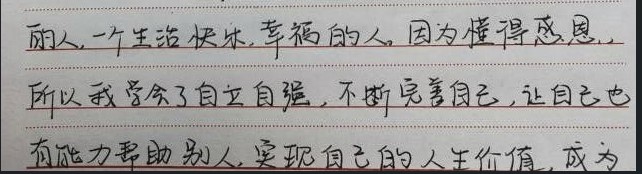 丽人,一个生活快乐,幸福的人,因为懂得感恩,,
所以我学会了自立自强,不断完善自己,让自己也
有能力帮助别人,实现自己的人生价值,成为